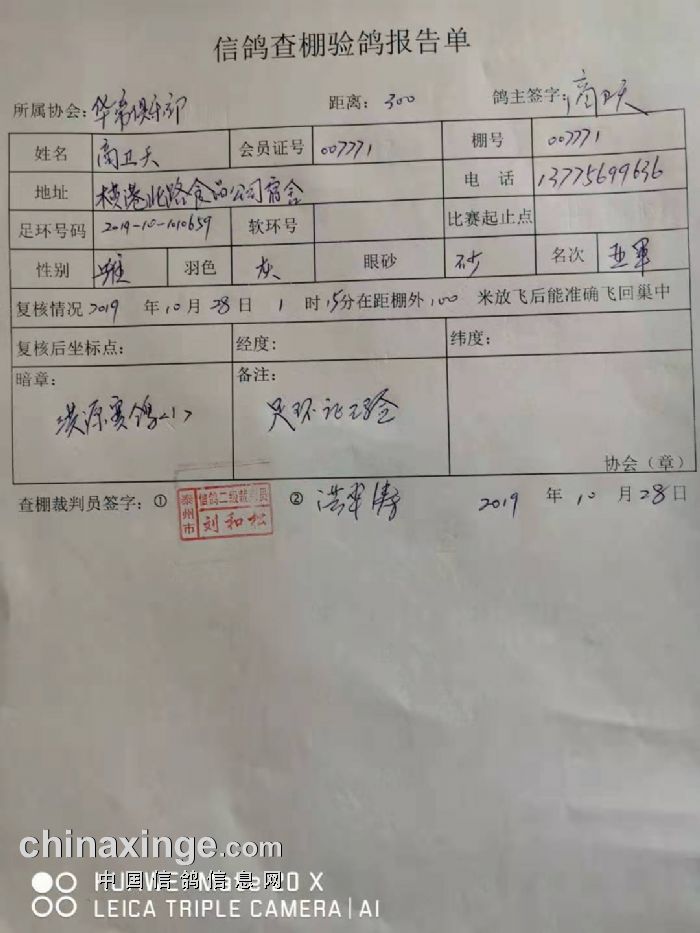 信鸽查棚验鸽报告单
所属协会：华帝俱乐部 距离：300 鸽主签字：商卫天
姓名 商卫天 会员证号 007771 棚号 007771
地址 北路食品公司宿舍 电话 13775699636
足环号码 2019-10-1010659 软环号 比赛起止点
性别 雄 羽色 灰 眼砂 砂 名次 亚军
复核情况 2019 年 10 月 28 日 1 时 15 分在距棚外 100 米放飞后能准确飞回巢中
复核后坐标点： 经度： 纬度：
暗章： 备注：
赛鸽<1> 足环证已验
协会（章）
查棚裁判员签字：① 泰州市 信鸽二级裁判员 刘和松 ② 2019 年 10 月 28 日
chinaxinge.com
中国信鸽信息网
HUAWEI Mate 20 X
LEICA TRIPLE CAMERA | AI